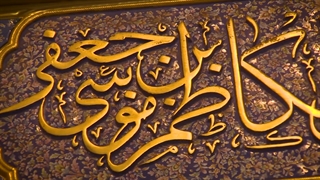 كاظم موسى بن جعفر